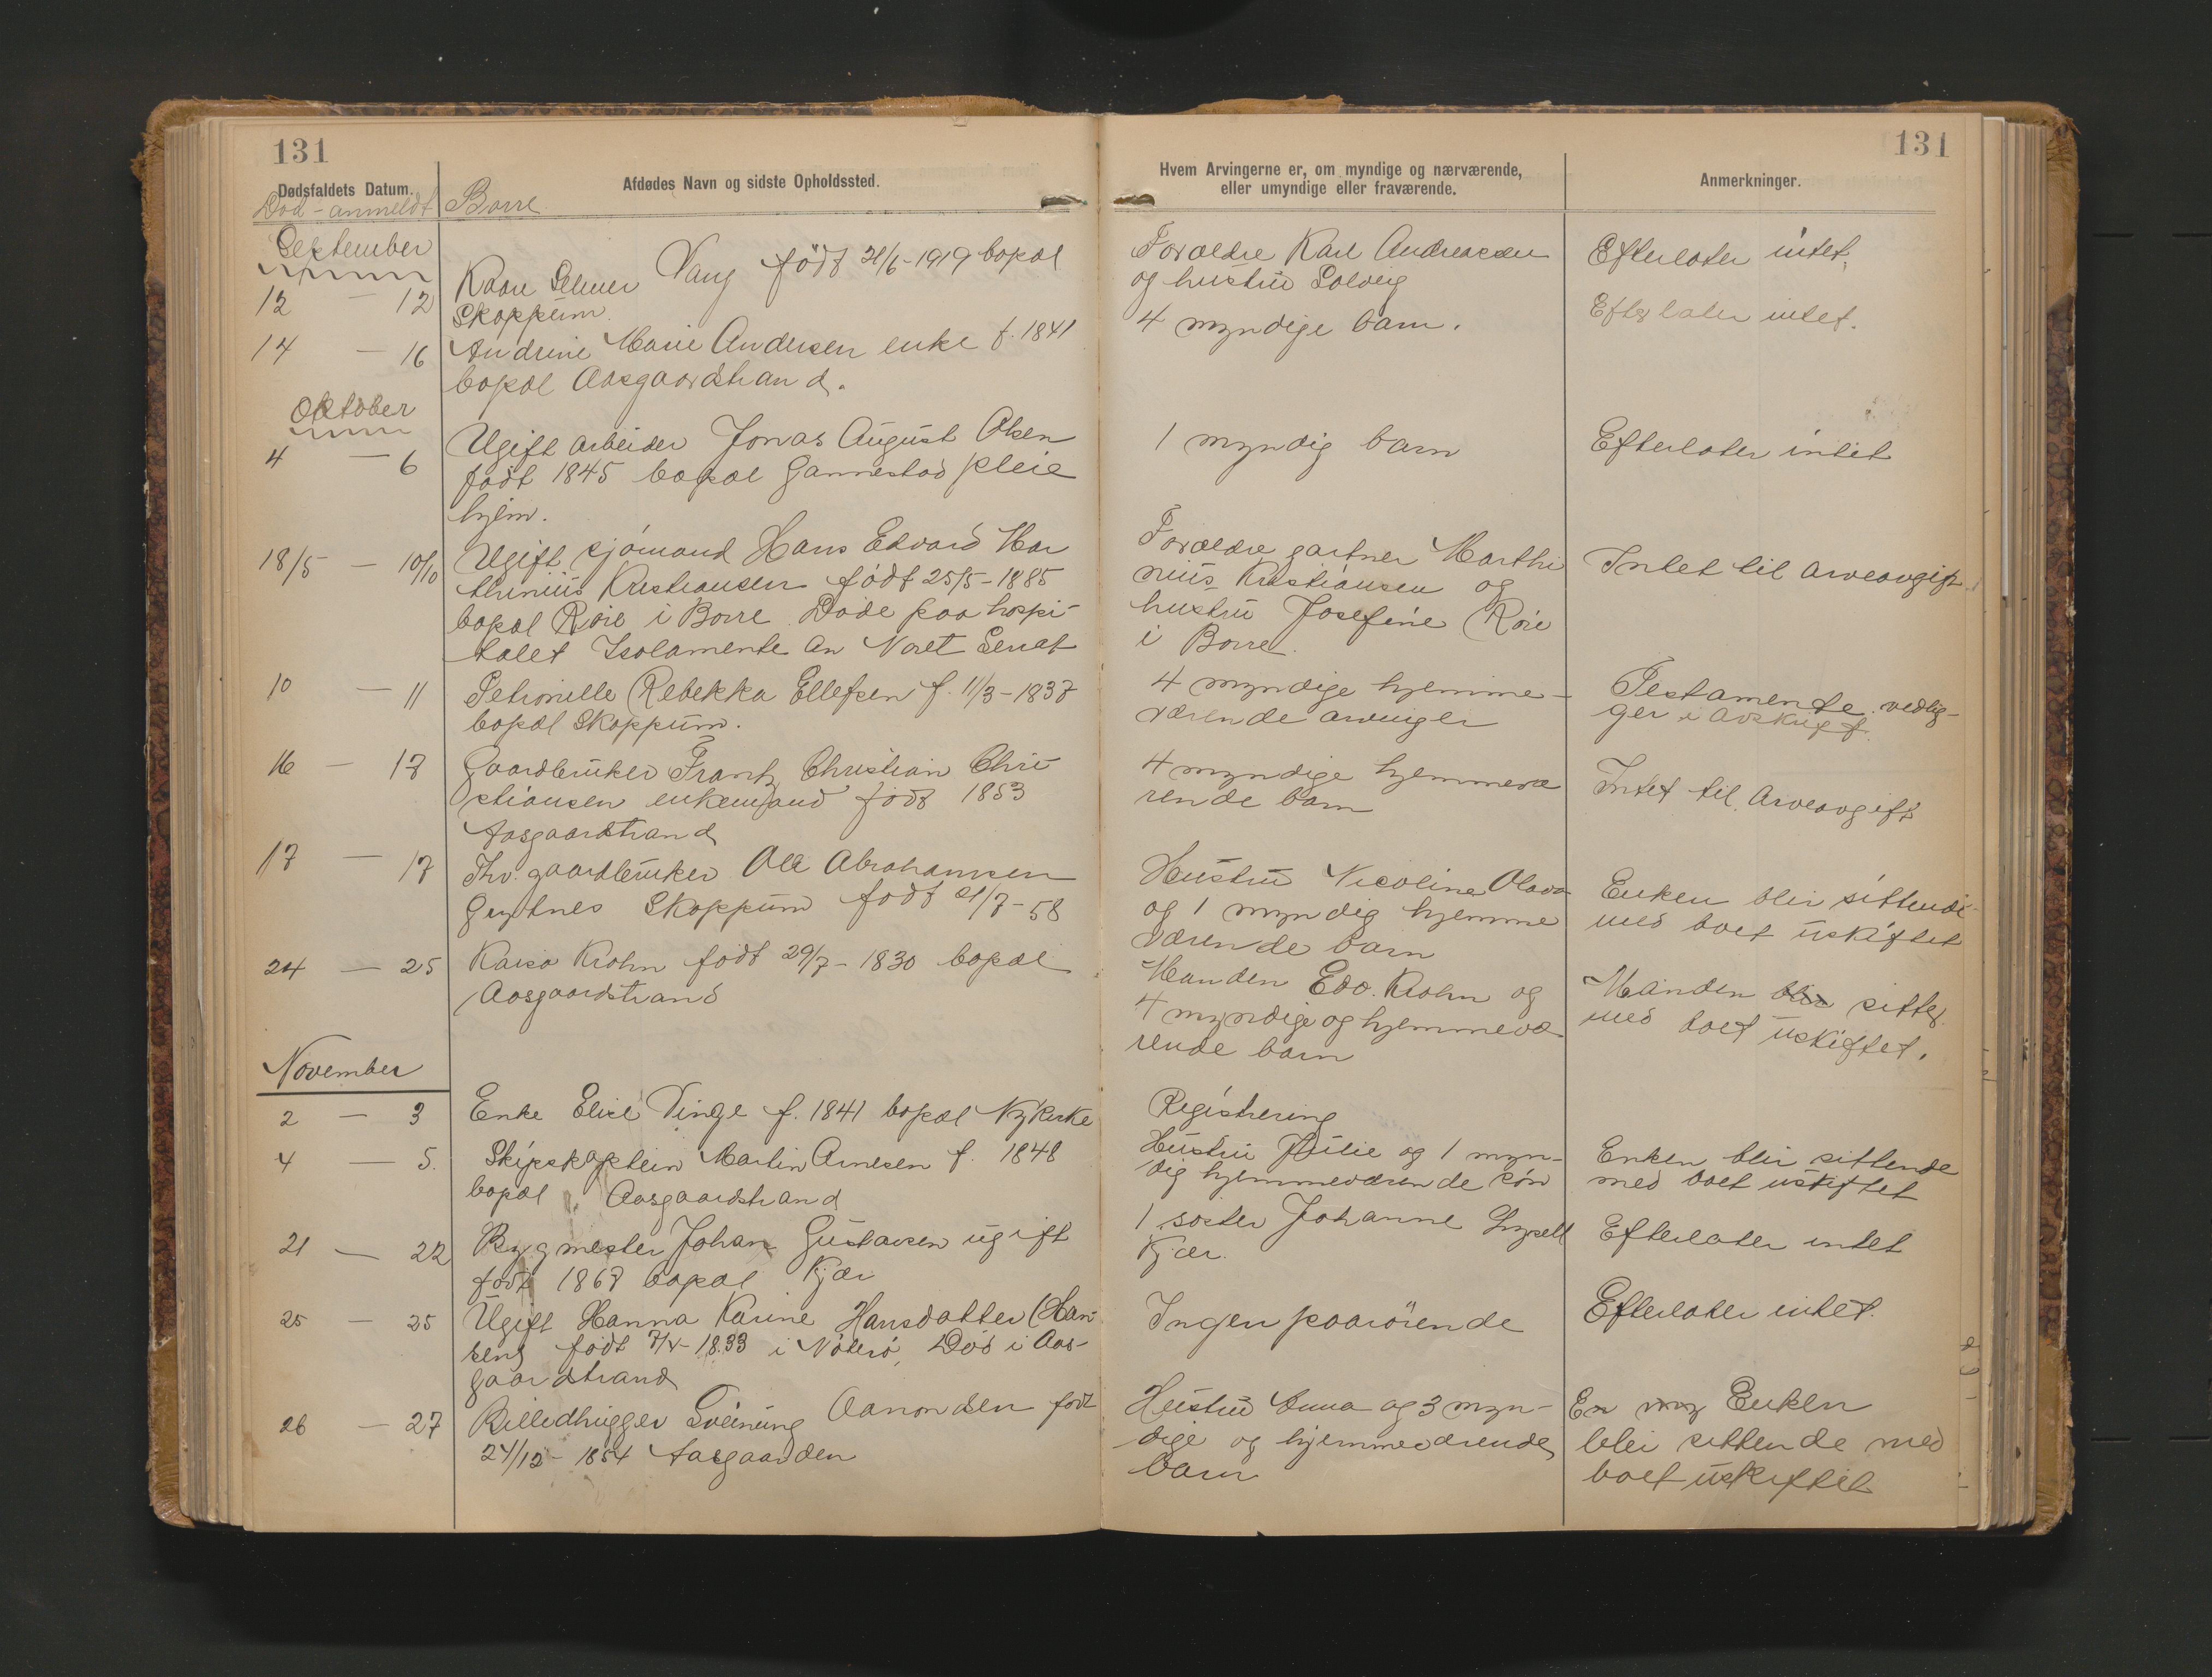 131
131
Dødsfaldets Datum.
Afdødes Navn og sidste Opholdssted.
Hvem Arvingerne er, om myndige og nærværende,
eller umyndige eller fraværende.
Anmerkninger.
Død - anmeldt
Borre
September
12 — 12
Kaare Selmer Vang født 21/6-1919 bopæl
Skoppum
Forældre Karl Andreassen
og hustru Solveig
Efterlater intet.
14 — 16
Andrine Marie Andersen enke f. 1841
bopæl Aasgaardstrand.
4 myndige barn.
Efterlater intet.
Oktober
4 — 6
Ugift arbeider Jonas August Olsen
født 1845 bopæl Gannestad pleie
hjem.
1 myndig barn
Efterlater intet
18/5 — 10/10
Ugift sjömand Hans Edvard Mar
thinius Kristiansen født 25/5-1885
bopæl Røre i Borre. Døde paa hospi-
talet Isolamente
Forældre gartner Marthi
nius Kristiansen og
hustru Josefine Røre
i Borre.
Intet til arveavgift
10 — 11
Petronelle Rebekka Ellefsen f. 11/3-1837
bopæl Skoppum.
4 myndige hjemme-
værende arvinger
Testamente vedlig-
ger i avskrift.
16 — 17
Gaardbruker Frantz Christian Chri-
stiansen enkemand født 1853
Aasgaardstrand
4 myndige hjemmevæ
rende barn
Intet til Arveavgift
17 — 17
Fhv. gaardbruker Ole Abrahamsen
Grytnes Skoppum født 21/7-58
Hustru Nicoline Olava
og 1 myndig hjemme
værende barn
Enken blir sittende
med boet uskiftet
24 — 25
Kaisa Krohn født 29/7-1830 bopæl
Aasgaardstrand
Manden Edv. Krohn og
4 myndige og hjemmevæ
rende barn
Manden blir sitter
med boet uskiftet.
November
2 — 3
Enke Elise Vinge f. 1841 bopæl Nykirke
Registrering
4 — 5.
Skipskaptein Martin Arnesen f. 1848
bopæl Aasgaardstrand
Hustru Julie og 1 myn-
dig hjemmeværende søn
Enken blir sittende
med boet uskiftet
21 — 22
Bygmester Johan Gustavsen ugift
født 1867 bopæl Kjær
1 søster Johanne
Kjær.
Efterlater intet
25 — 25
Ugift Hanna Karine Hansdatter (Han-
sen) født 7/5-1833 i Nøterö, Död i Aas-
gaardstrand
Ingen paarørende
Efterlater intet.
26 — 27
Billedhugger Sveinung Aanonsen født
24/12-1854 Aasgaarden
Hustru Anna og 3 myn-
dige og hjemmeværende
barn
En Enken
blei sittende med
boet uskiftet